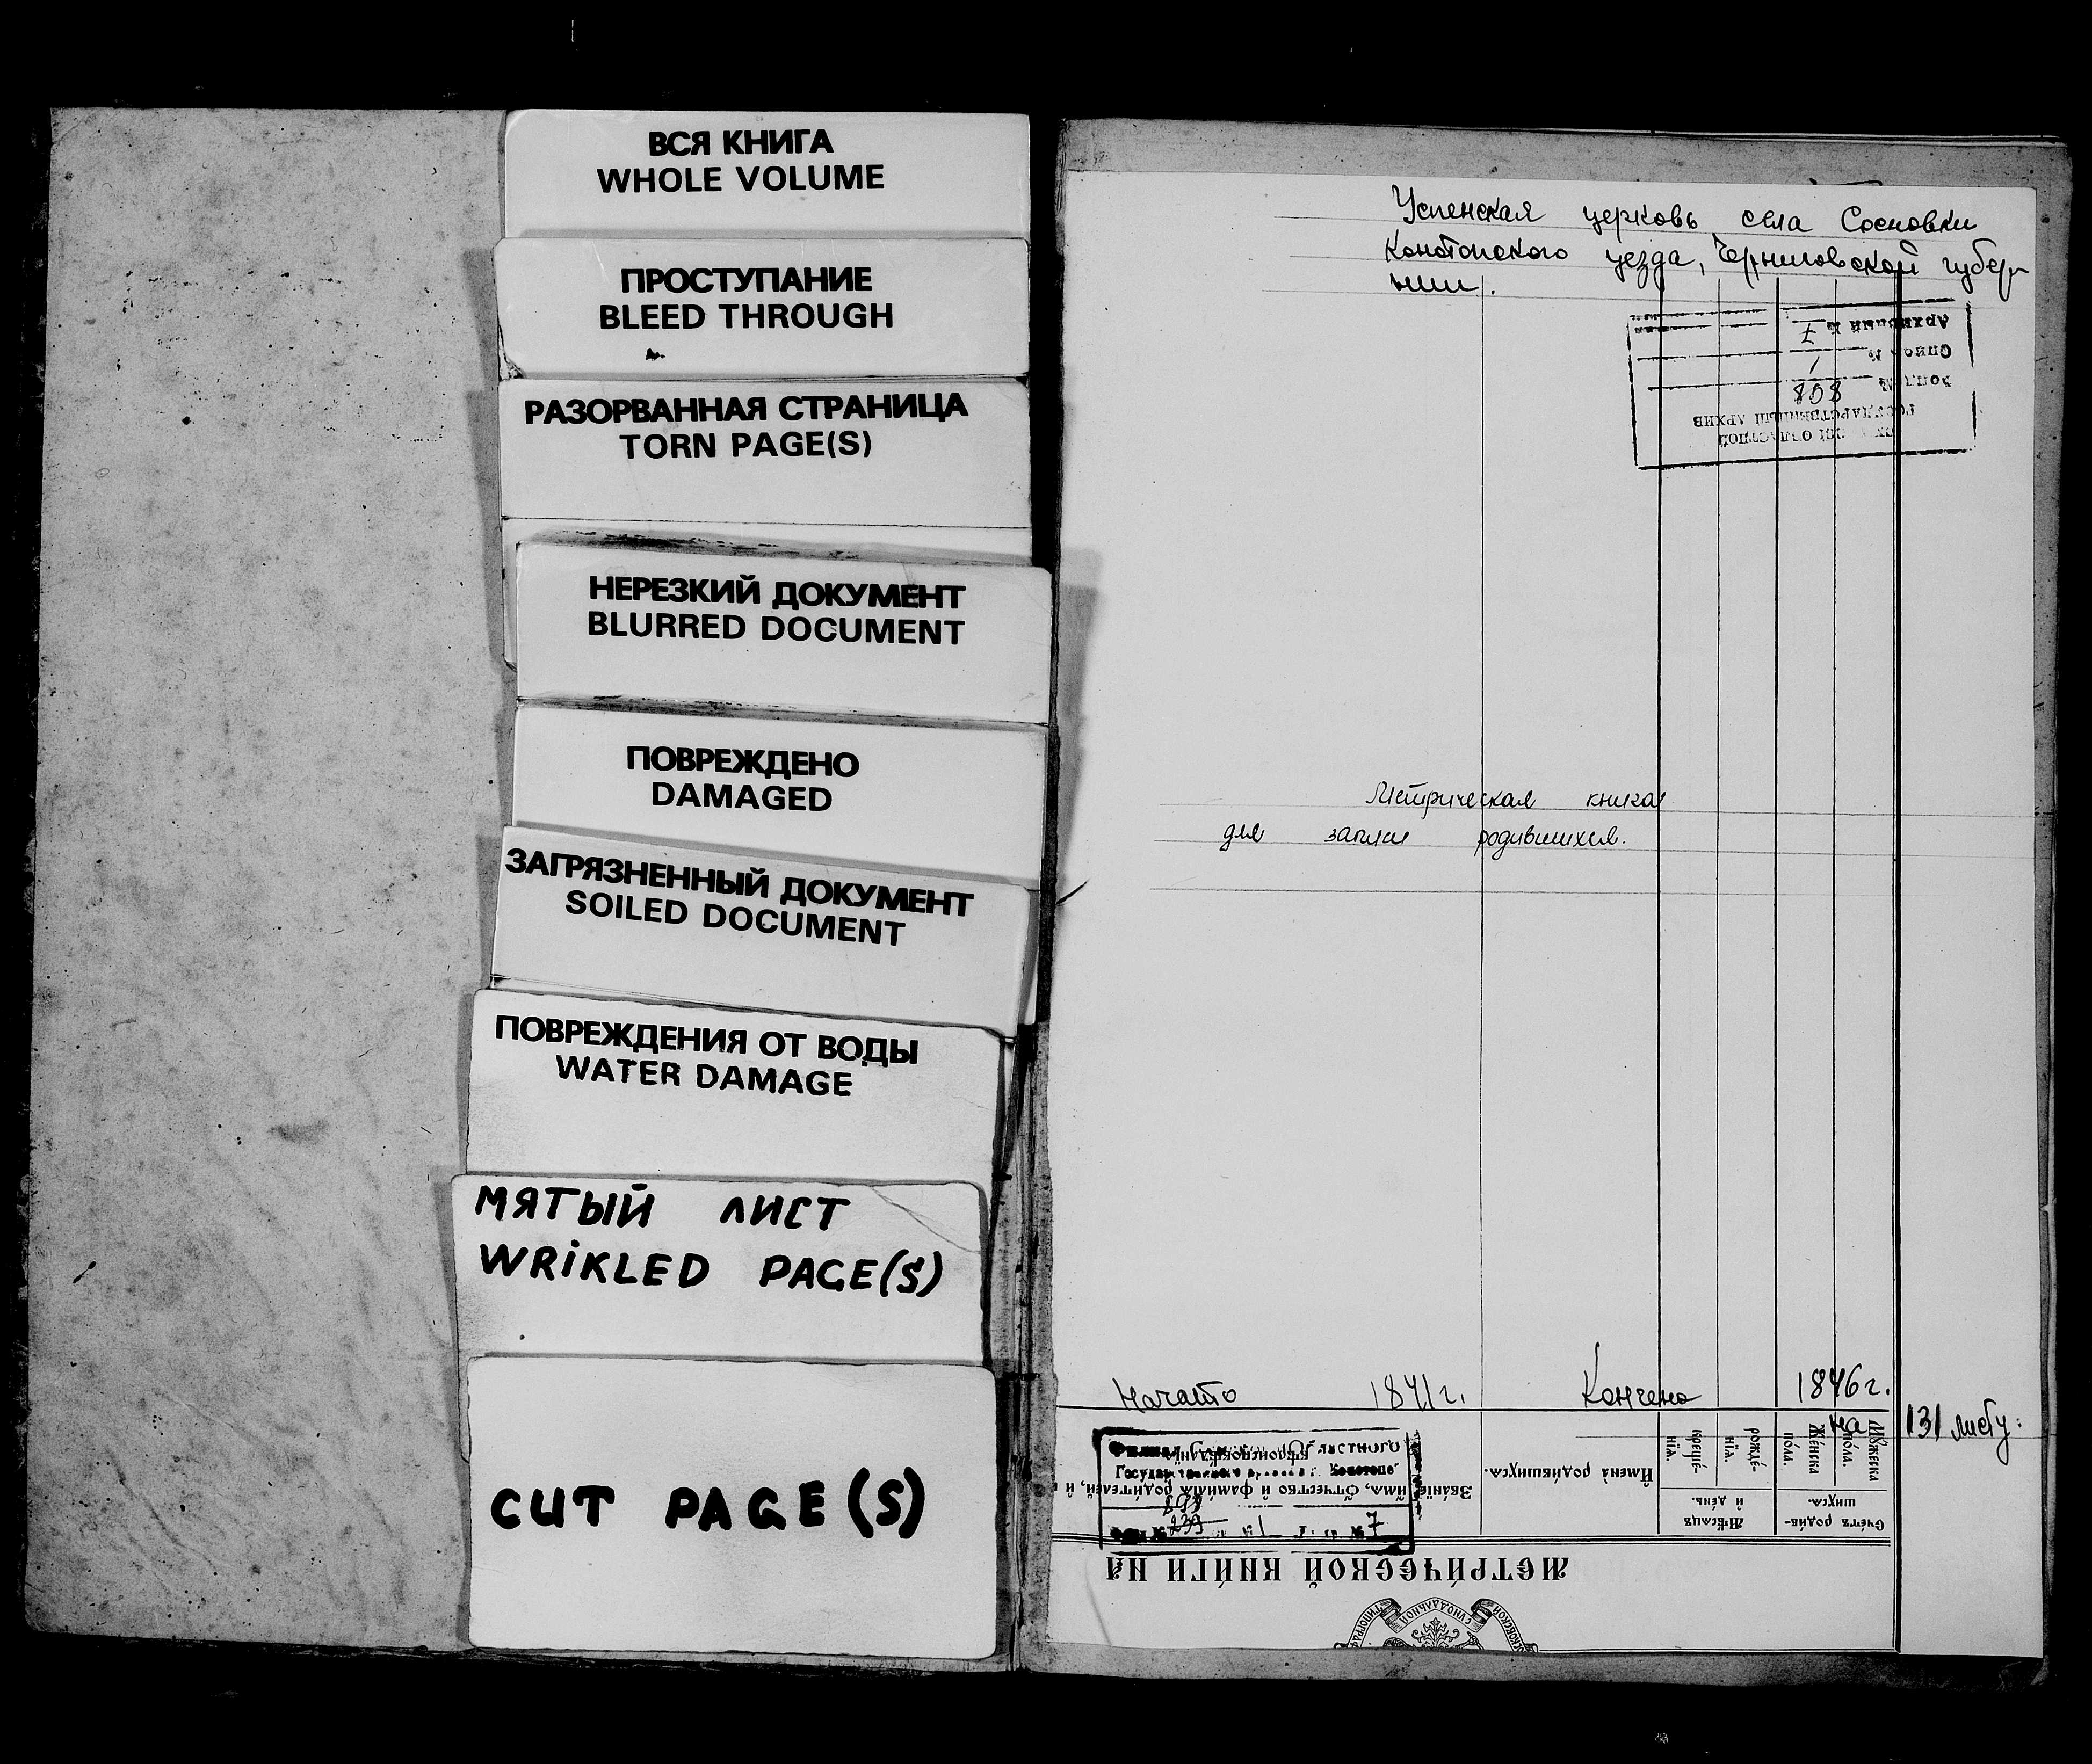 ВСЯ КНИГА
WHOLE VOLUME
ПРОСТУПАНИЕ
BLEED THROUGH
РАЗОРВАННАЯ СТРАНИЦА
TORN PAGE(S)
НЕРЕЗКИЙ ДОКУМЕНТ
BLURRED DOCUMENT
ПОВРЕЖДЕНО
DAMAGED
ЗАГРЯЗНЕННЫЙ ДОКУМЕНТ
SOILED DOCUMENT
ПОВРЕЖДЕНИЯ ОТ ВОДЫ
WATER DAMAGE
МЯТЫЙ ЛИСТ
WRIKLED PAGE(S)
CUT PAGE(S)
Успенская церковь села Сосновки
Конотопского уезда, Черниговской губер
нии.
ОБЛАСТНОЙ
ГОСУДАРСТВЕННЫЙ АРХИВ
Фонд № 808
Опись № 1
Архивный № 7
Метрическая книга
для записи родившихся.
Начато 1841 г. Кончено 1846 г.
на 131 листу:
Филиал Областного
№ 239 № 1 № 7
МЕТРИ́ЧЕСКОЙ КНИ́ГИ НА
Сче́тъ роди́в-
шихсѧ.
Мѣ́сѧцъ
и҆ де́нь.
Му́жеска
по́ла.
Же́нска
по́ла.
рожде́-
нїѧ.
креще́-
нїѧ.
И҆мена̀ роди́вшихсѧ.
Зва́нїе, и҆́мѧ, ѻ҆́тчество и҆ фами́лїѧ роди́телей, и҆
СѴНОДАЛЬНОЙ